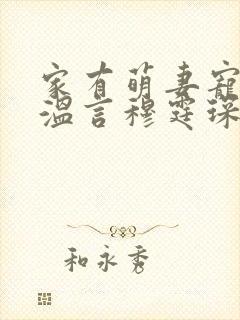 家有萌妻宠
温言穆霆琛
和永秀